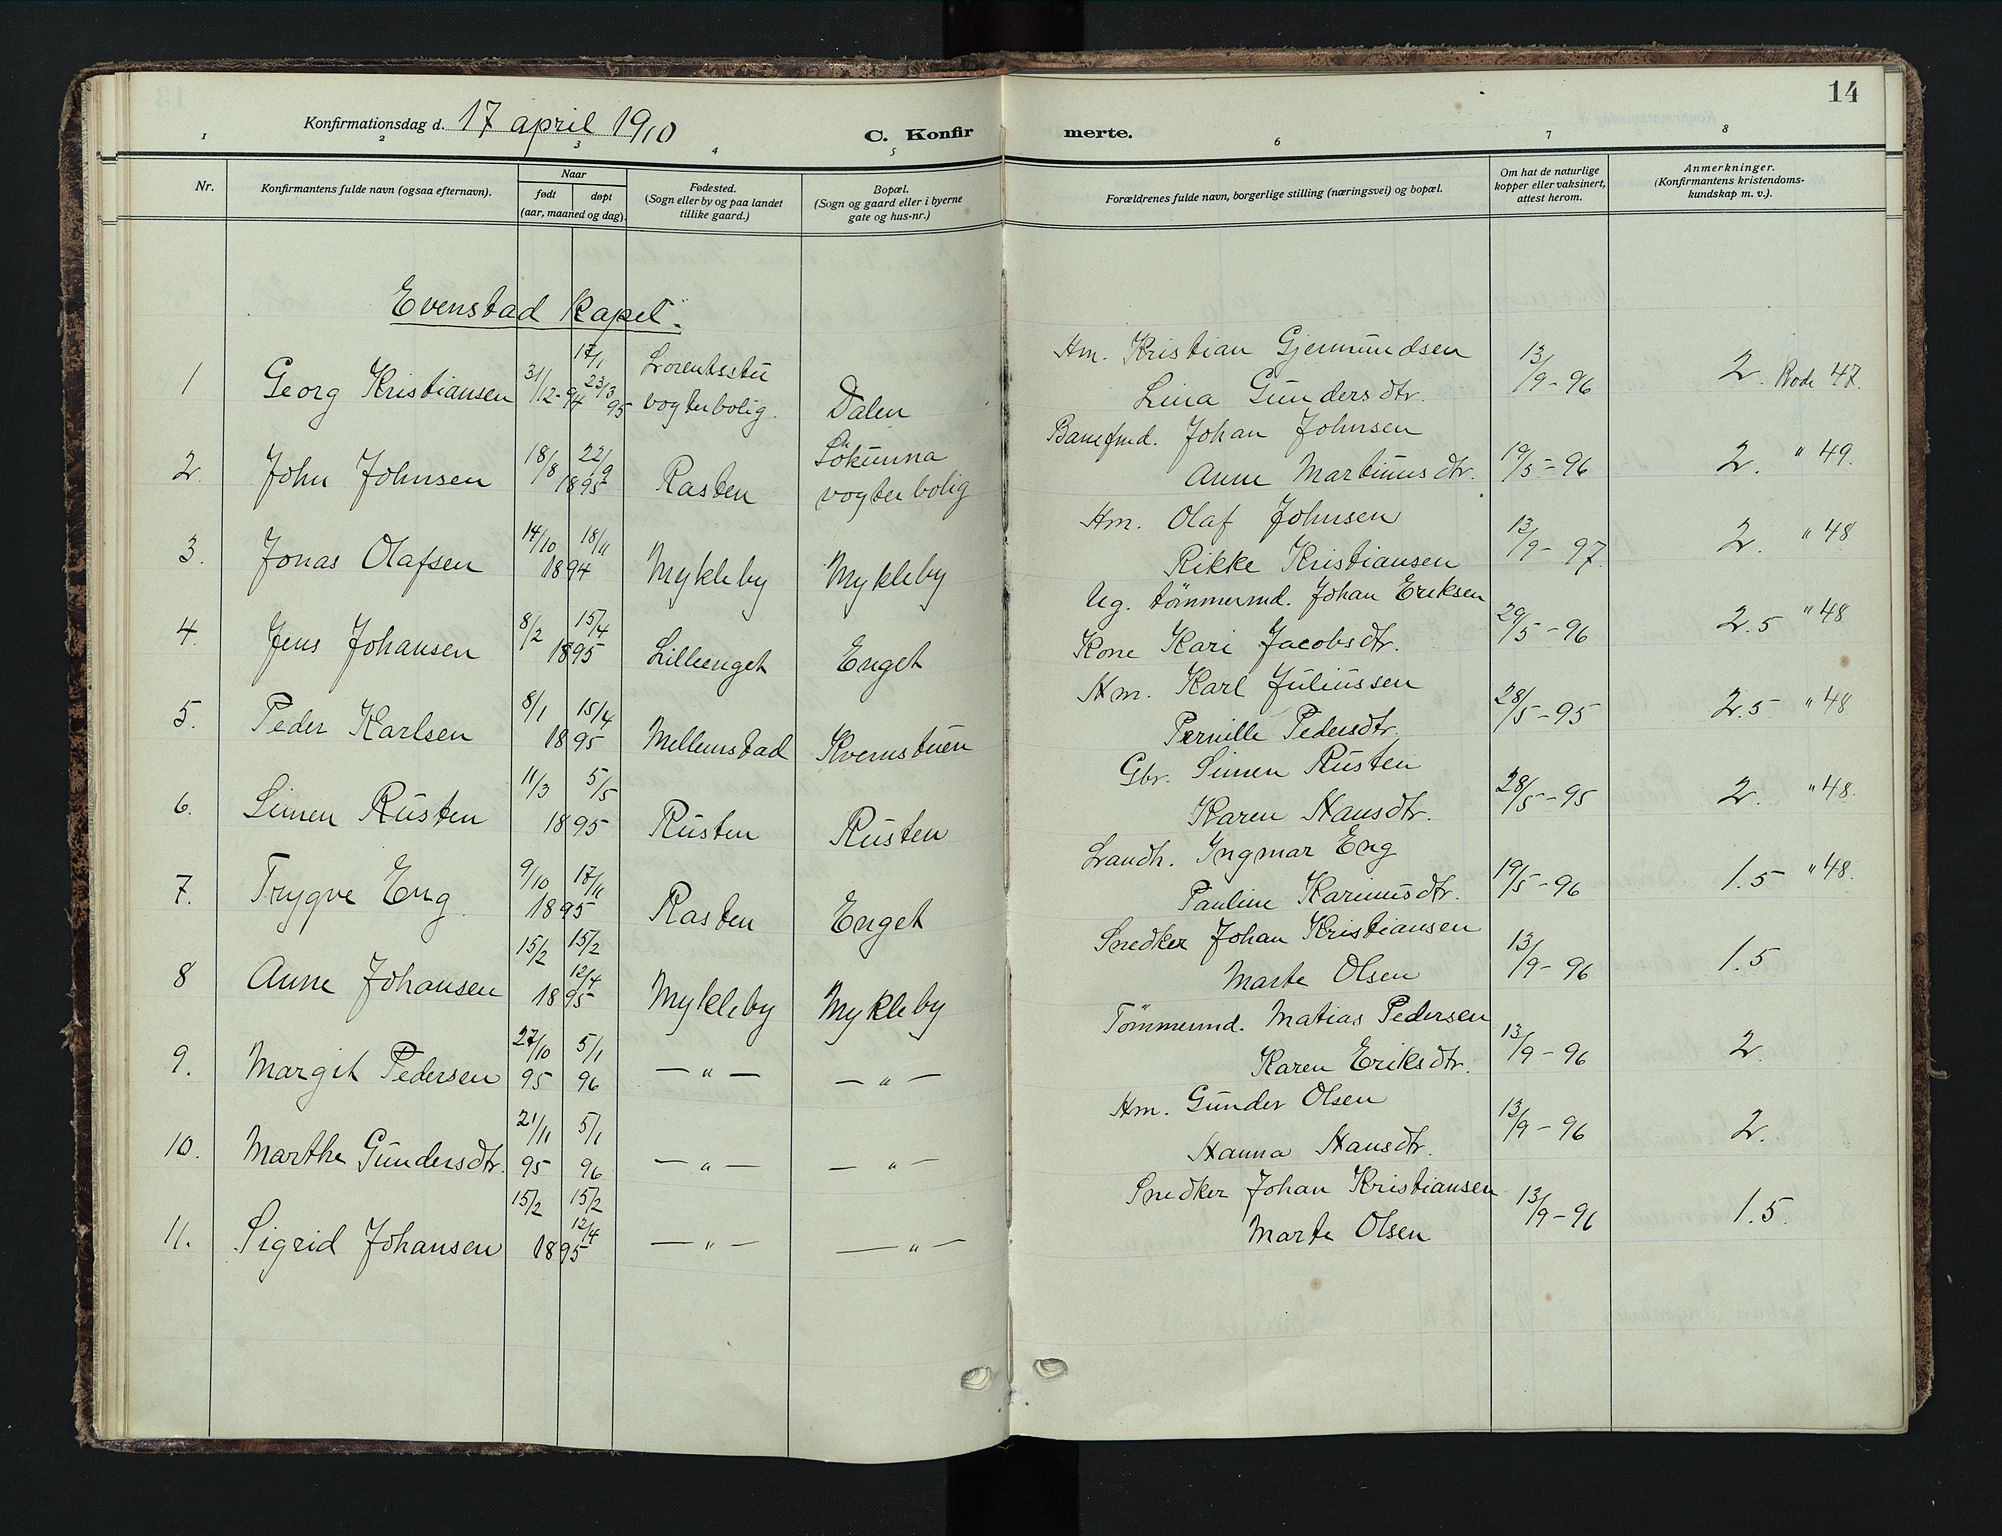 14
Konfirmationsdag d. 17 april 1910
C. Konfirmerte.
1 2 3 4 5 6 7 8
Nr.
Konfirmantens fulde navn (ogsaa efternavn).
Naar
født døpt
(aar, maaned og dag).
Fødested.
(Sogn eller by og paa landet
tillike gaard.)
Bopæl.
(Sogn og gaard eller i byerne
gate og hus-nr.)
Forældrenes fulde navn, borgerlige stilling (næringsvei) og bopæl.
Om hat de naturlige
kopper eller vaksinert,
attest herom.
Anmerkninger.
(Konfirmantens kristendoms-
kundskap m. v.).
Evenstad kapel.
17/1 Lorentsstu Hm. Kristian Gjermundsen 13/9-96 2. Rode 47.
1 Georg Kristiansen 31/12-94 23/3 95 vogterbolig. Dalen Lina Gundersdtr.
18/8 22/9 Banefmd. Johan Johnsen
2. John Johnsen 1895 Rasten Sökunna vogterbolig Anne Martinusdtr. 19/5-96 2. " 49.
14/10 18/11 Hm. Olaf Johnsen
3. Jonas Olafsen 1894 Mykleby Mykleby Rikke Kristiansen 13/9-97. 2. " 48
8/2 15/4 Ug. tömmermd. Johan Eriksen
4. Jens Johansen 1895 Lilleenget Enget Kone Kari Jacobsdtr. 29/5-96 2.5 " 48
8/1 15/4 Hm. Karl Juliussen
5. Peder Karlsen 1895 Mellemstad Kvernstuen Pernille Pedersdtr. 28/5-95 2.5 " 48
11/3 5/5 Gbr. Simen Rusten
6. Simen Rusten 1895 Rusten Rusten Karen Hansdtr. 28/5-95 2. " 48.
9/10 17/11 Landh. Ingmar Eng
7. Trygve Eng 1895 Rasten Enget Pauline Karinusdtr. 19/5-96 1.5 " 48.
15/2 15/2 12/4 Snedker Johan Kristiansen
8 Anne Johansen 1895 Mykleby Mykleby Marte Olsen 13/9-96 1.5
27/10 5/1 Tömmermd. Matias Pedersen
9. Margit Pedersen 95 96 — " — — " — Karen Eriksdtr. 13/9-96 2.
21/11 5/1 Hm. Gunder Olsen
10. Marthe Gundersdtr. 95 96 — " — — " — Hanna Hansdtr. 13/9-96 2.
15/2 15/2 12/4 Snedker Johan Kristiansen
11. Sigrid Johansen 1895 — " — — " — Marte Olsen 13/9-96 1.5.